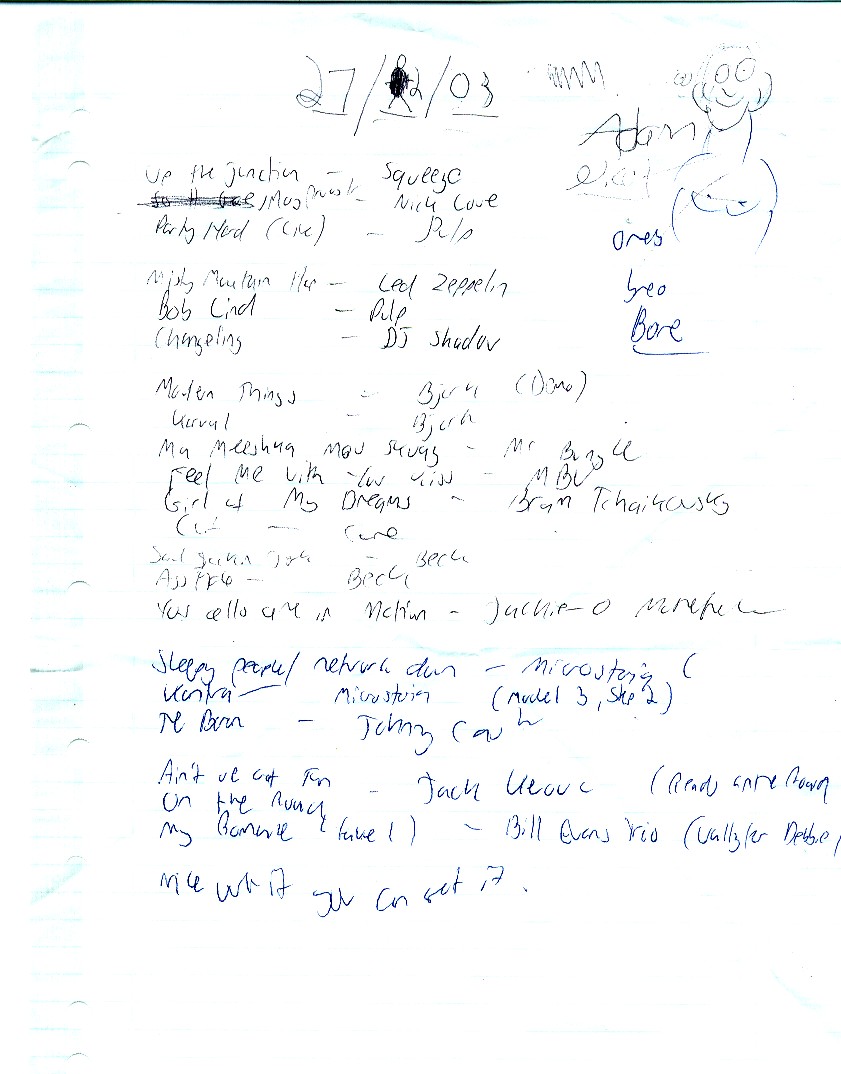 27/2/03
Adam
Up the junction - Squeeze
- Nick Cave
Party Hard (Live) - Pulp
ones
Misty Mountain Hop - Led Zeppelin
Bob Lind - Pulp
Changeling - DJ Shadow
Bore
Modern Things - Bjork (Demo)
- Bjork
Ma Meeshka Mow Skwoz - Mr Bungle
Feel Me with Your Kiss - MBV
Girl of My Dreams - Bram Tchaikovsky
Cut - Cure
- Beck
- Beck
Your cells are in Motion - Jackie-O Motherf
Sleepy people/network down - Microstoria (
Microstoria (Model 3, Step 2)
- Johnny Cash
Ain't we got fun - Jack Kerouac (Reads On the Road
On the Road
My Romance (take 1) - Bill Evans Trio (Waltz for Debbie)
Nice work if you can get it.